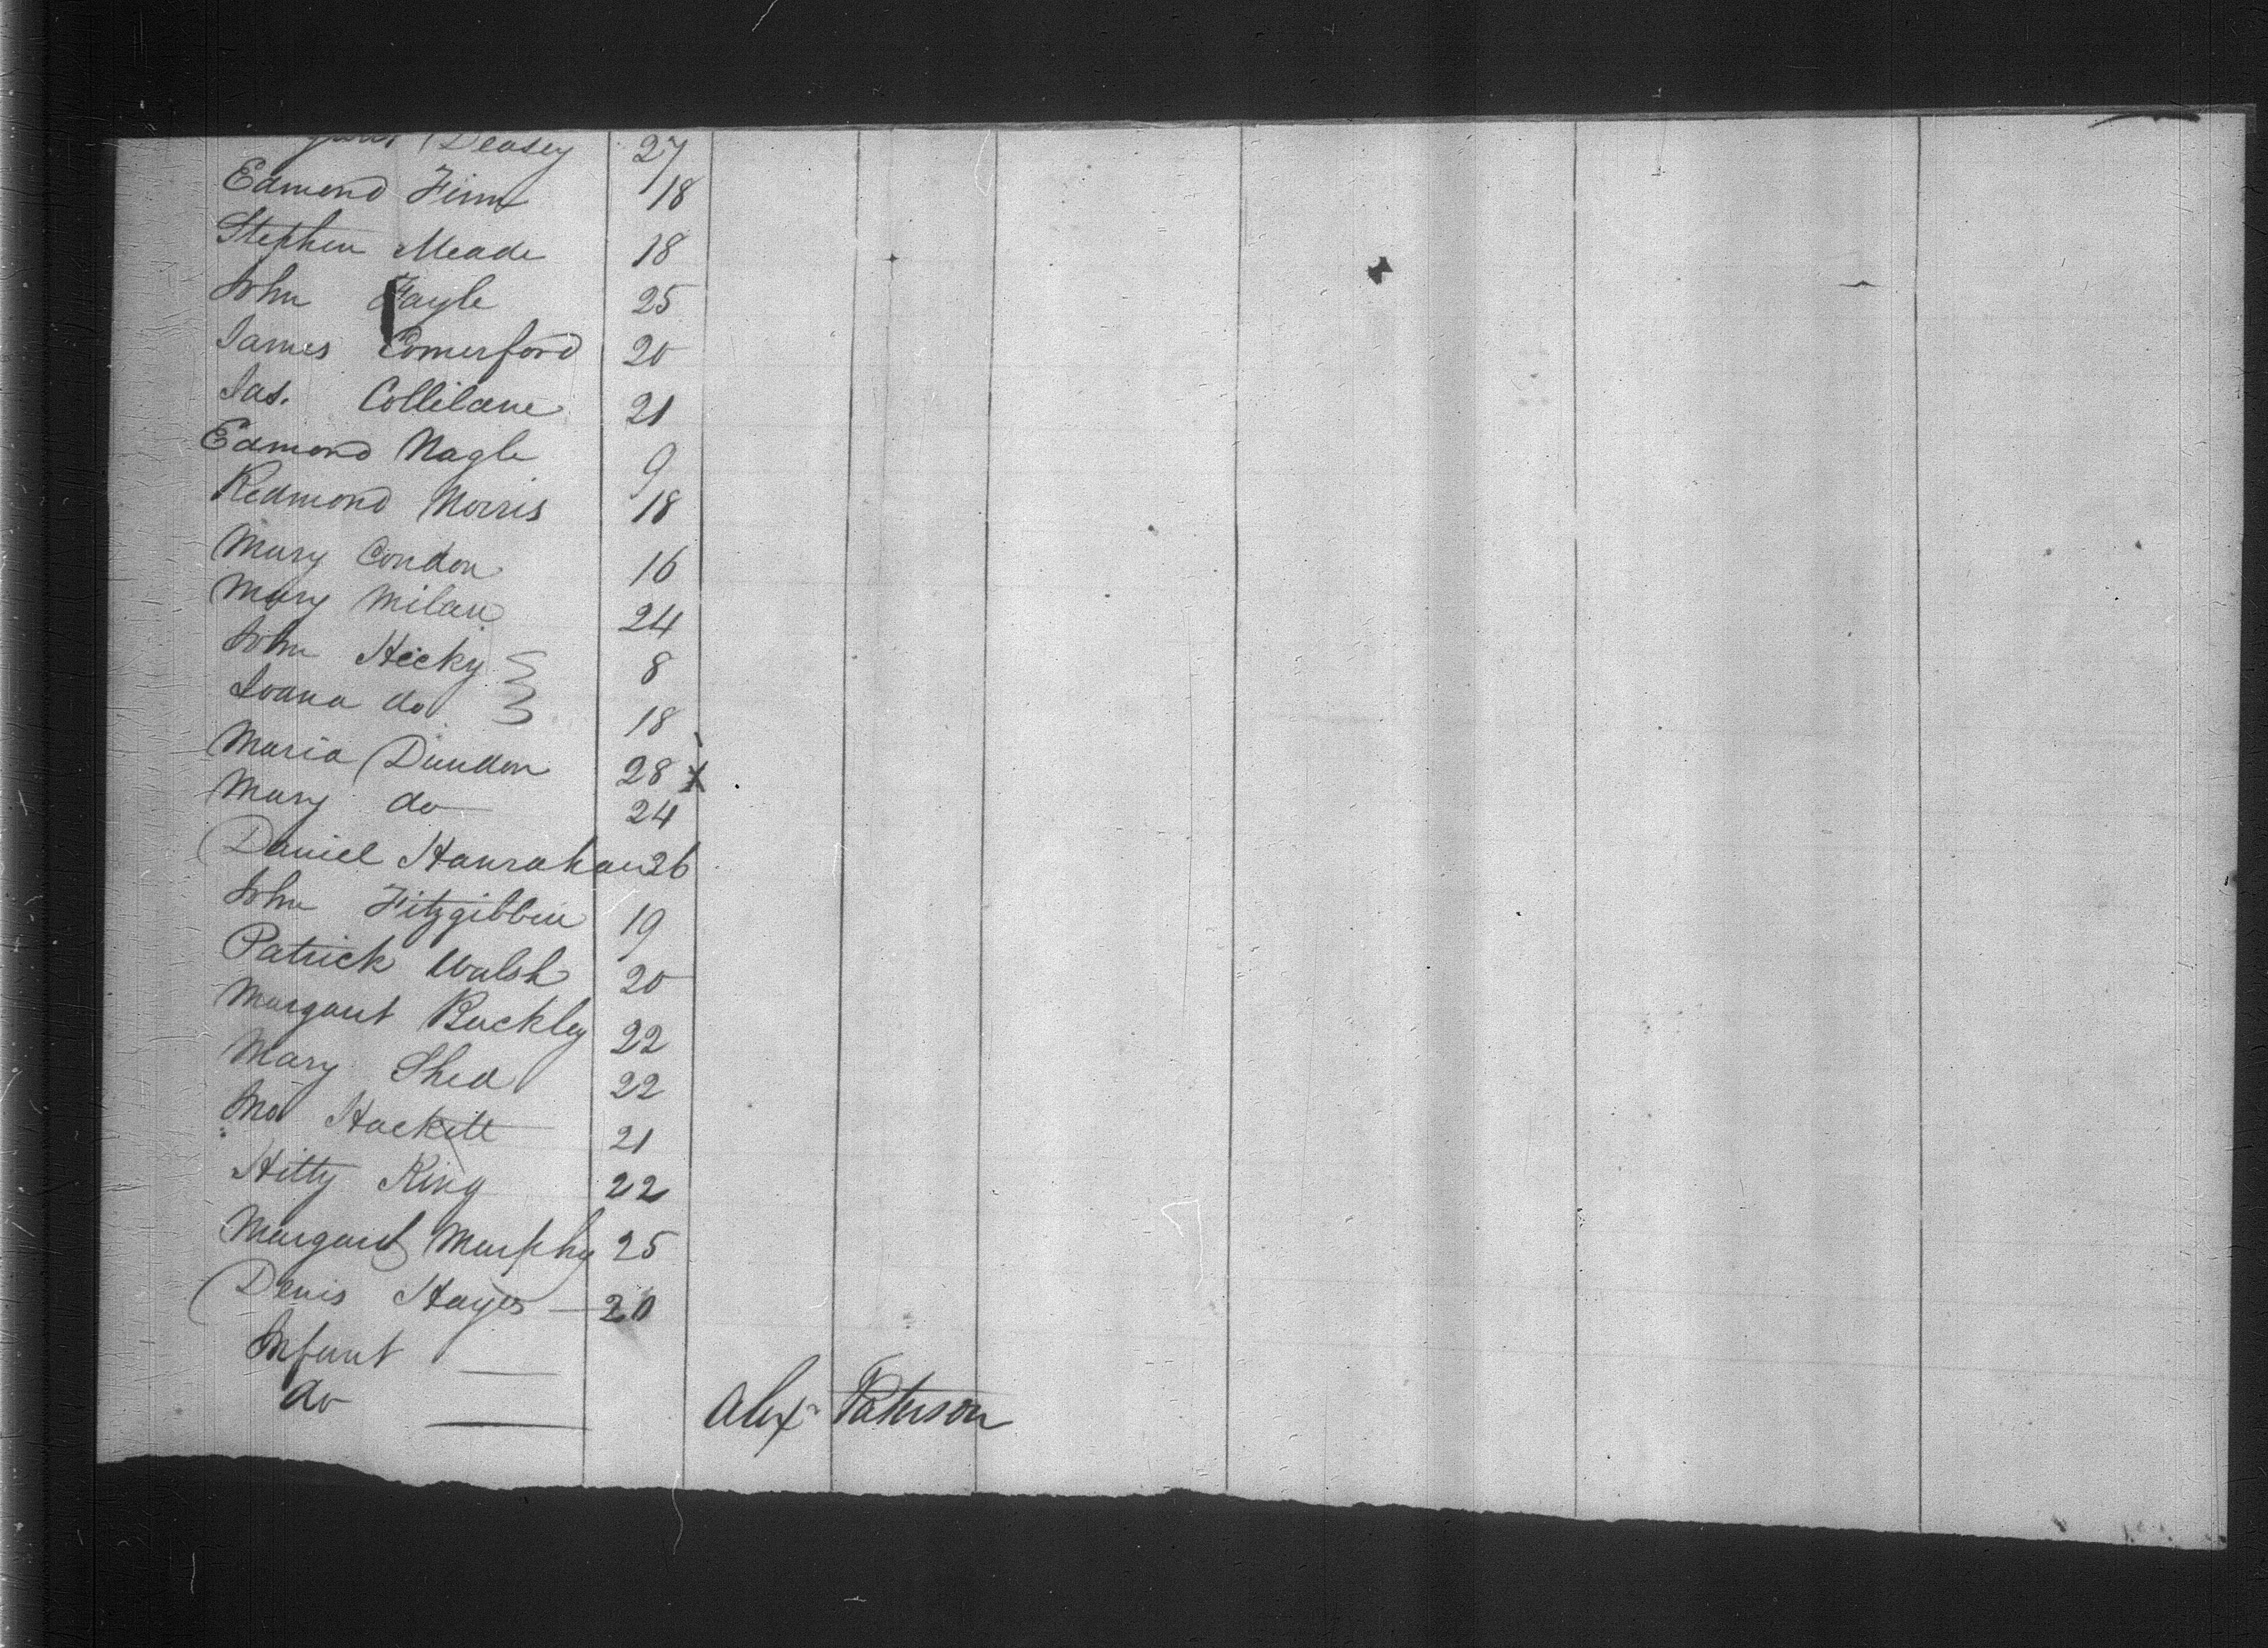 Deasey 27
Edmond Finn 18
Stephen Meade 18
John Fayle 25
James Comerford 20
Jas. Collilane 21
Edmond Nagle 9
Redmond Morris 18
Mary Condon 16
Mary Milan 24
John Hicky 8
Joana do 18
Maria Dundon 28 x
Mary do 24
Daniel Hanrahan 26
John Fitzgibbin 19
Patrick Walsh 20
Margaret Buckley 22
Mary Shea 22
Hackett 21
Hitty King 22
Margaret Murphy 25
Denis Hayes — 20
Infant —
do —
Alexr Paterson